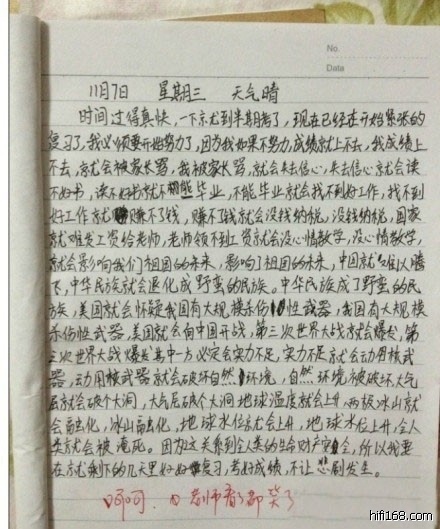 No.
Data
11月7日 星期三 天气晴
时间过得真快,一下就到半期考了,现在已经在开始紧张的
复习了,我必须要开始努力了,因为我如果不努力,成绩就上不去,我成绩上
不去,就会被家长骂,我被家长骂,就会失去信心,失去信心就会读
不好书,读不好书就不能毕业,不能毕业就会找不到好工作,找不到
好工作就赚不了钱,赚不了钱就会没钱纳税,没钱纳税,国家
就难发工资给老师,老师领不到工资就会没心情教学,没心情教学,
就会影响我们祖国的未来,影响了祖国的未来,中国就难以腾
飞,中华民族就会退化成野蛮的民族。中华民族成了野蛮的民
族,美国就会怀疑我国有大规模杀伤性武器,我国有大规模
杀伤性武器,美国就会向中国开战,第三次世界大战就会爆发,第
三次世界大战爆发其中一方必定会实力不足,实力不足就会动用核武
器,动用核武器就会破坏自然环境,自然环境被破坏大气
层就会破个大洞,大气层破个大洞地球温度就会上升,两极冰山就
会融化,冰山融化,地球水位就会上升,地球水位上升,全人
类就会被淹死。因为这关系到全人类的生命财产安全,所以我要
在就剩下的几天里好好复习,考好成绩,不让悲剧发生。
呵呵,老师看了都笑了
hifi168.com